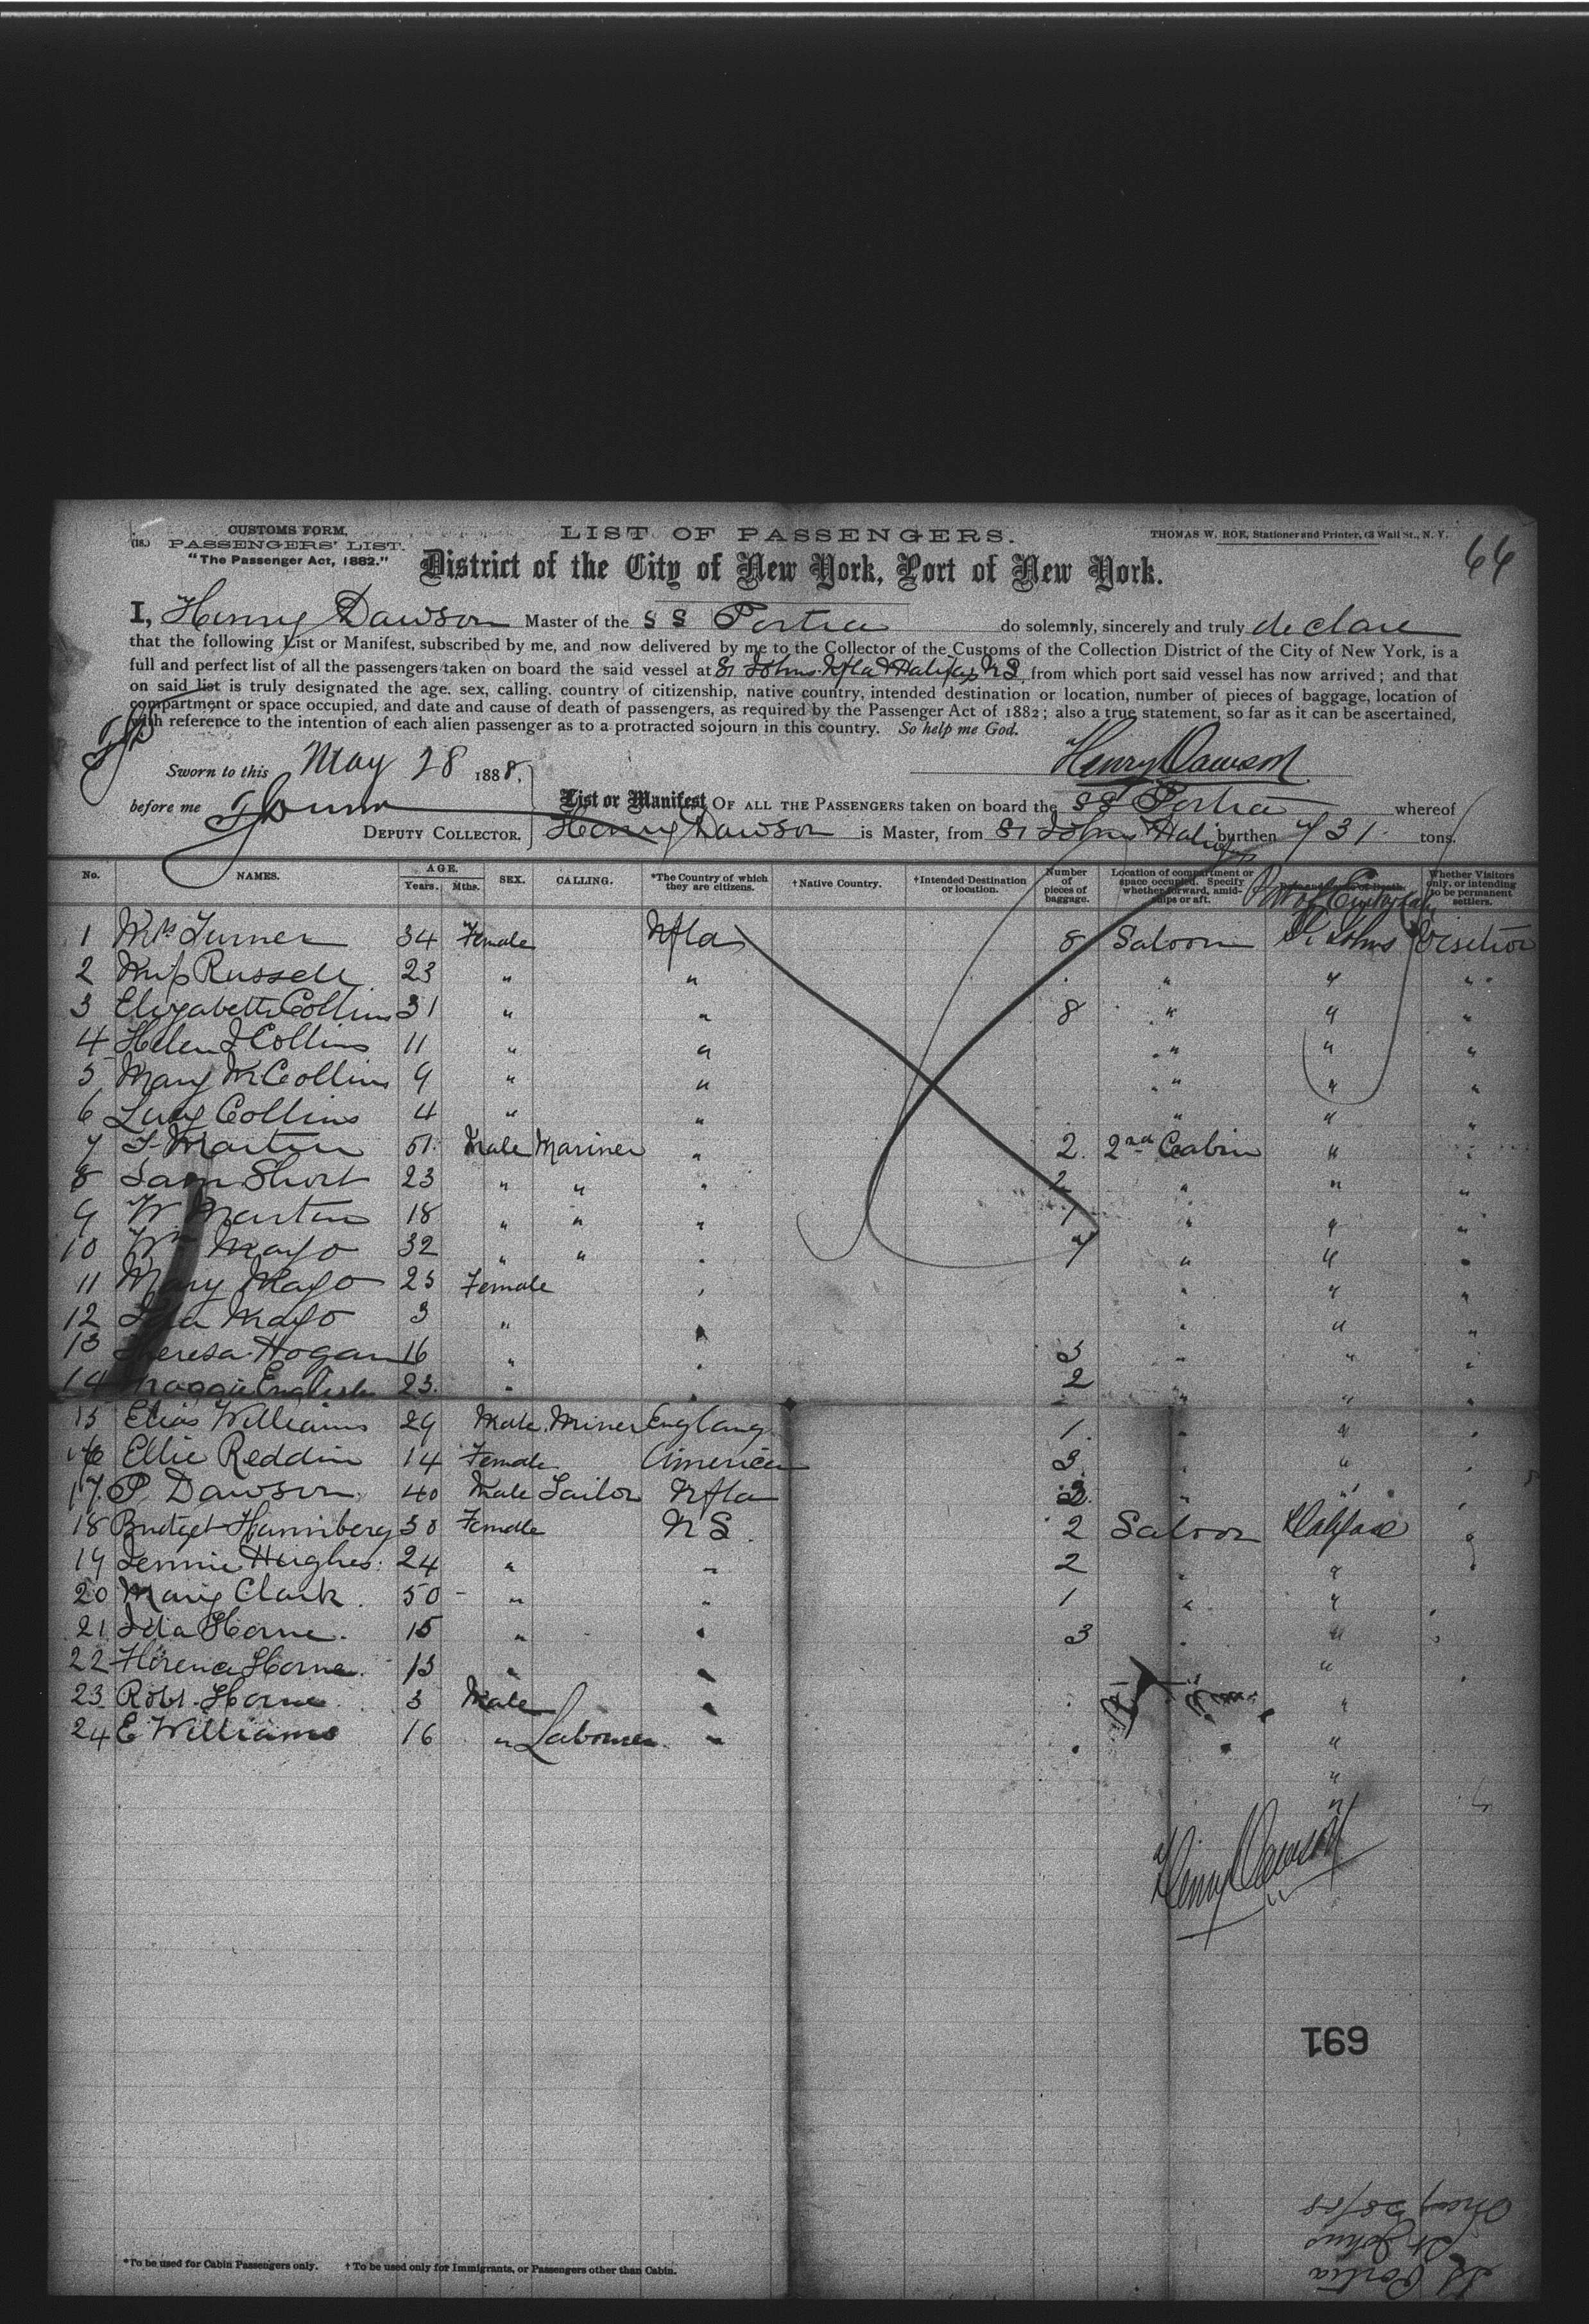 CUSTOMS FORM.
(18.) PASSENGERS' LIST.
"The Passenger Act, 1882."
LIST OF PASSENGERS.
THOMAS W. ROE, Stationer and Printer, 63 Wall St., N. Y.
66
District of the City of New York, Port of New York.
I, Henry Dawson Master of the SS Portia do solemnly, sincerely and truly declare
that the following List or Manifest, subscribed by me, and now delivered by me to the Collector of the Customs of the Collection District of the City of New York, is a
full and perfect list of all the passengers taken on board the said vessel at St Johns Nfld & Halifax NS from which port said vessel has now arrived; and that
on said list is truly designated the age, sex, calling, country of citizenship, native country, intended destination or location, number of pieces of baggage, location of
compartment or space occupied, and date and cause of death of passengers, as required by the Passenger Act of 1882; also a true statement, so far as it can be ascertained,
with reference to the intention of each alien passenger as to a protracted sojourn in this country. So help me God.
Sworn to this May 28 1888,
Henry Dawson
before me
DEPUTY COLLECTOR.
List or Manifest OF ALL THE PASSENGERS taken on board the SS Portia whereof
Henry Dawson is Master, from St Johns & Halifax burthen 731 tons.
No. NAMES. AGE. Years. Mths. SEX. CALLING. *The Country of which they are citizens. †Native Country. †Intended Destination or location. Number of pieces of baggage. Location of compartment or space occupied. Specify whether forward, amidships or aft. Port of Embarkation Whether Visitors only, or intending to be permanent settlers.
1 Mrs Turner 34 Female Nfld 8 Saloon St Johns Visitor
2 Miss Russell 23 " " " " "
3 Elizabeth Collins 31 " " 8 " " "
4 Helen J Collins 11 " " " " "
5 Mary M Collins 9 " " " " "
6 Lucy Collins 4 " " " " "
7 J Martin 51 Male Mariner " 2 2nd Cabin " "
8 Sam Short 23 " " " 2 " " "
9 W Martin 18 " " " 1 " " "
10 Wm Mayo 32 " " " 7 " " "
11 Mary Mayo 25 Female " " " "
12 Mayo 3 " " " " "
13 Theresa Hogan 16 " " 3 " " "
14 Maggie English 23 " " 2 " " "
15 Elias Williams 29 Male Miner England 1 " " "
16 Ellie Reddin 14 Female America 3 " " "
17 P Dawson 40 Male Tailor Nfld 2 " " "
18 Bridget 30 Female NS 2 Saloon Halifax "
19 Jennie Hughes 24 " " 2 " " "
20 Mary Clark 50 " " 1 " " "
21 Ida Horne 15 " " 3 " " "
22 Florence Horne 13 " " "
23 Robt Horne 3 Male " "
24 E Williams 16 " Labourer " " "
"
"
Henry Dawson
691
SS Portia
St Johns
May 28/88
*To be used for Cabin Passengers only. †To be used only for Immigrants, or Passengers other than Cabin.